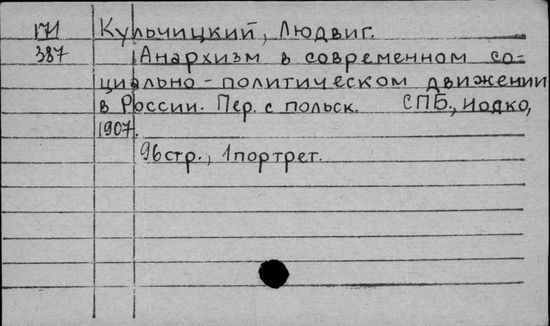 171 Кульчицкий, Людвиг.
387 Анархизм в современном со-
циально-политическом движении
в России. Пер. с польск. СПБ., Иодко,
1907.
96 стр., 1 портрет.